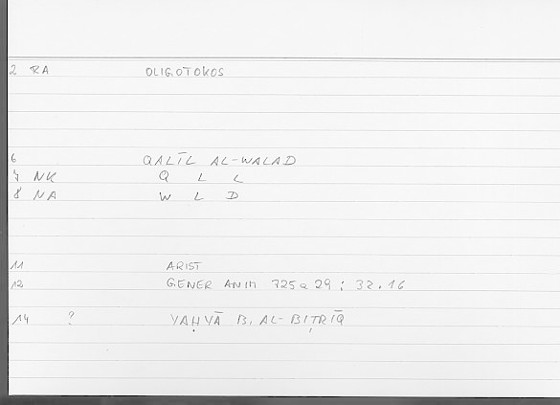 2 RA OLIGOTOKOS
6 QALĪL AL-WALAD
7 NK Q L L
8 NA W L D
11 ARIST
12 GENER ANIM 725a29 ; 32.16
14 ? YAḤYĀ B. AL-BIṬRĪQ